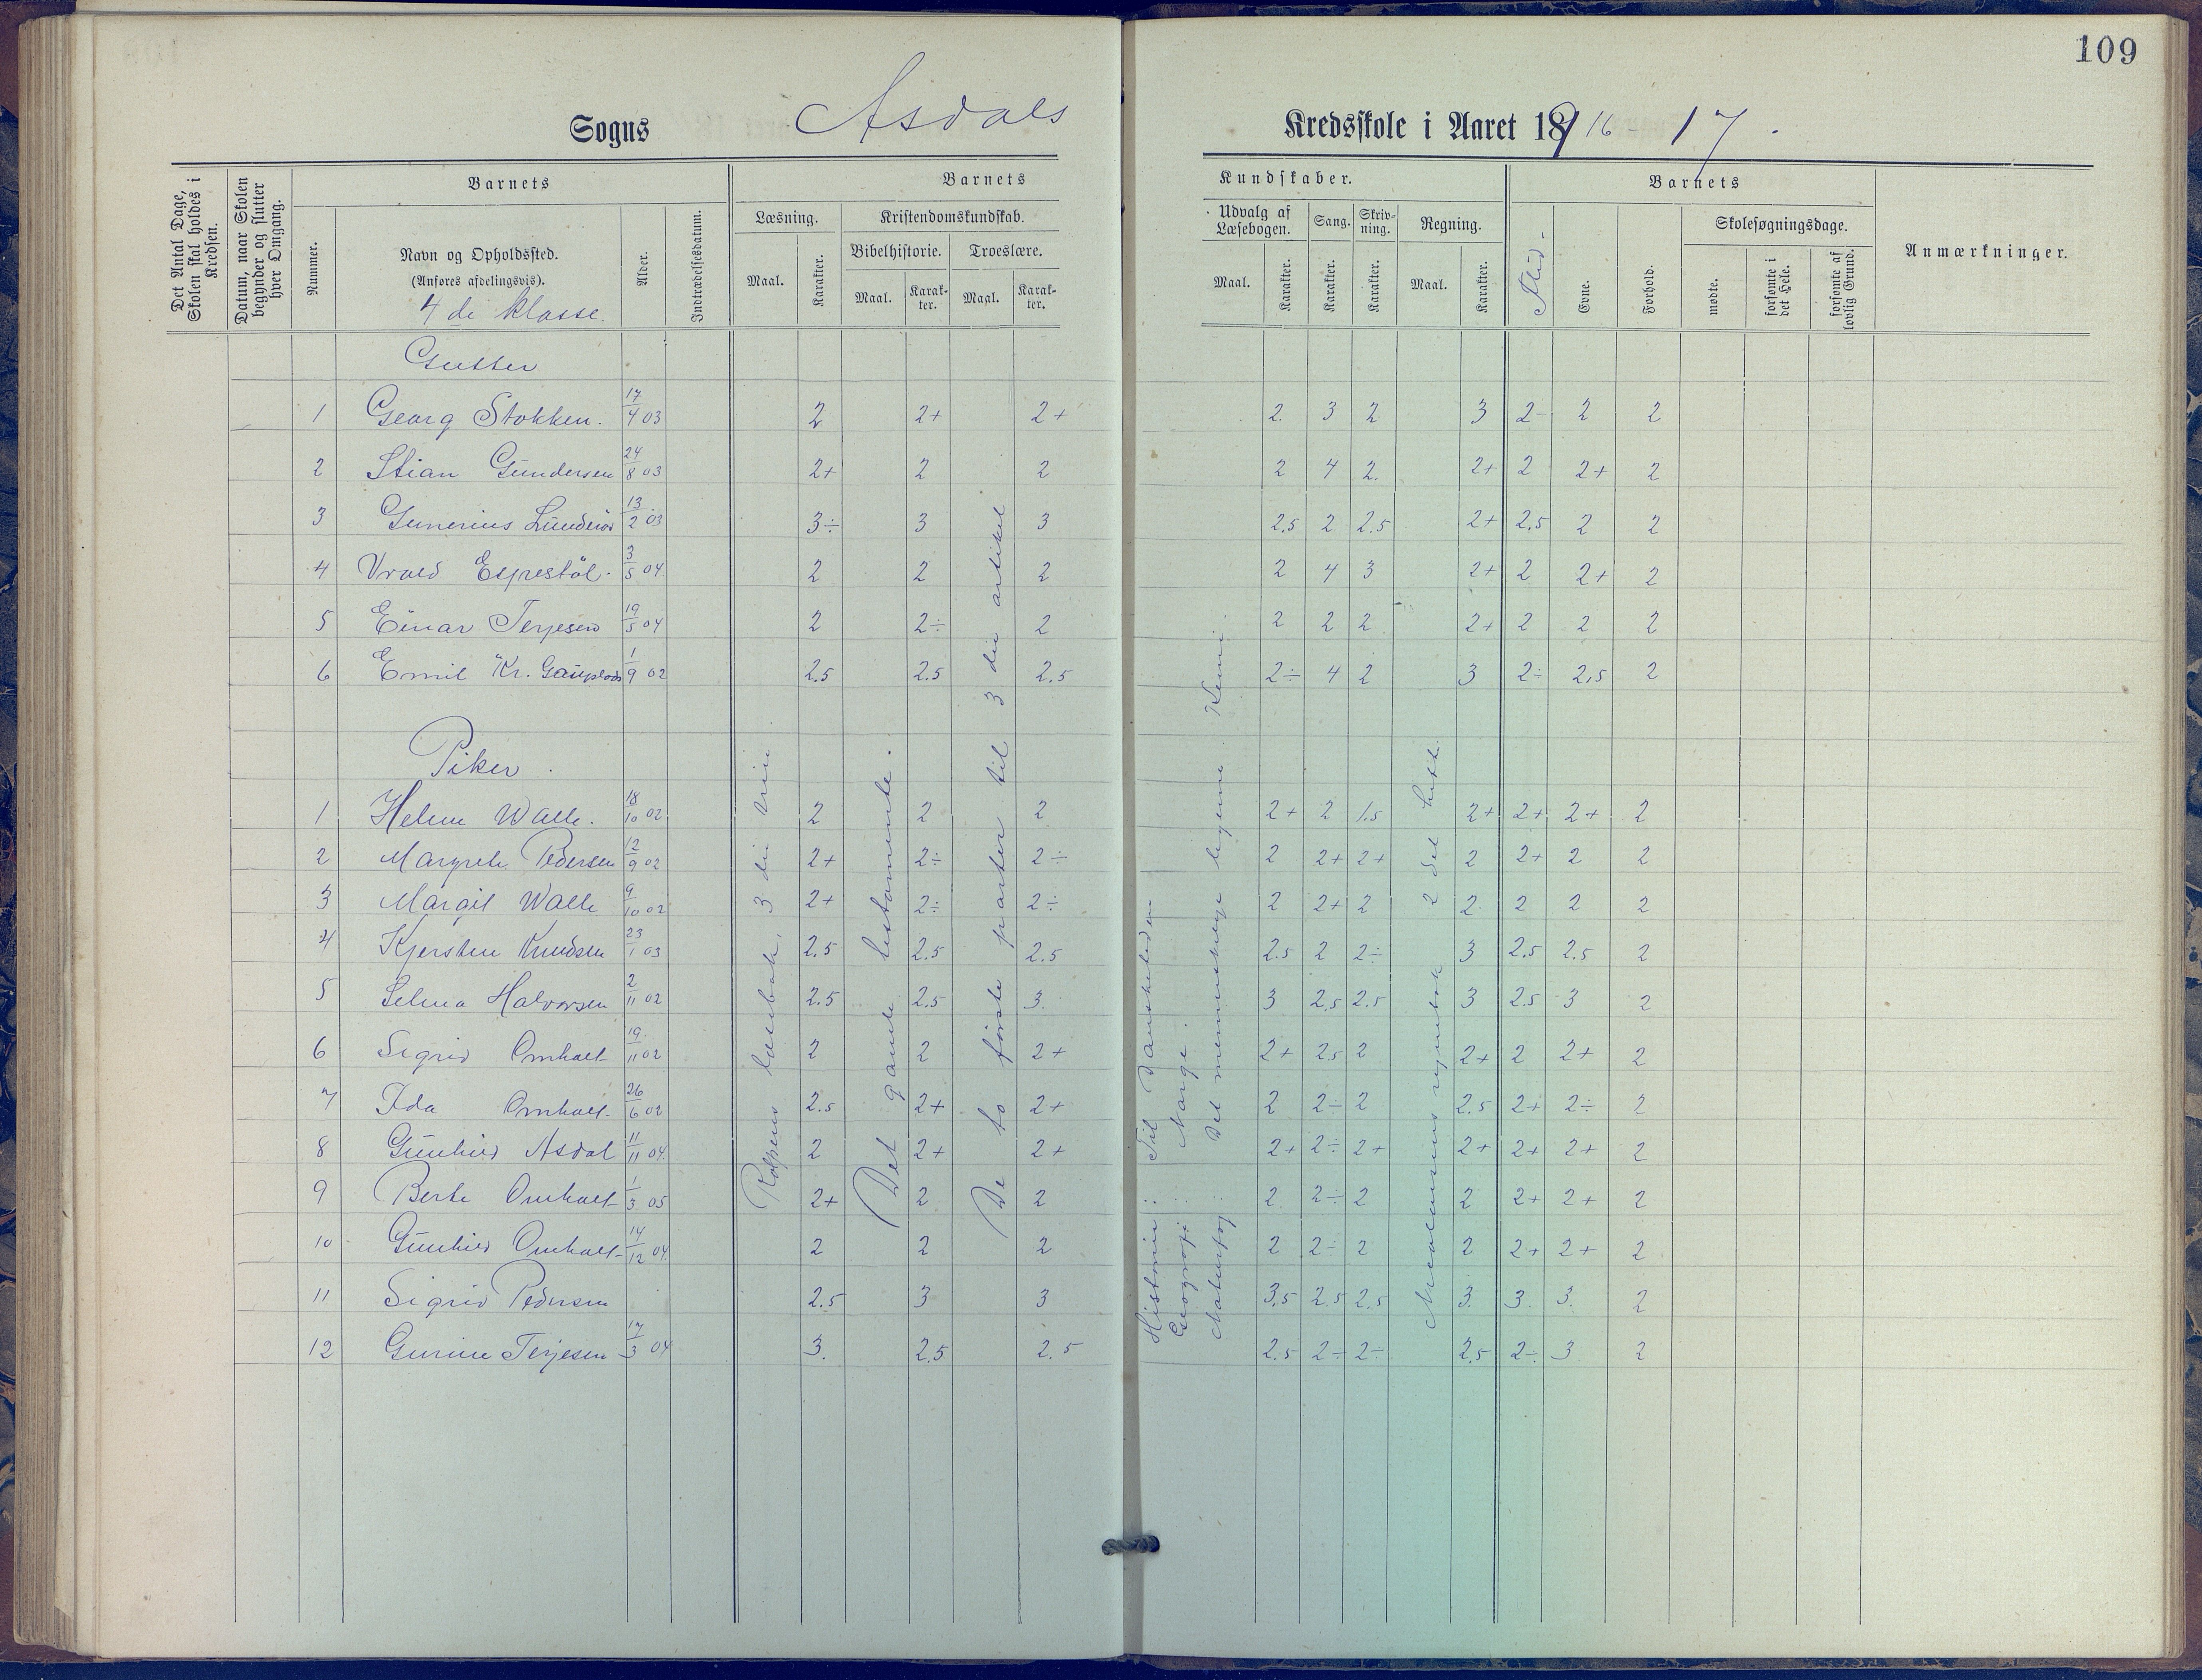 109
Sogns Asdals Kredsskole i Aaret 1916-17.
Det Antal Dage, Skolen skal holdes i Kredsen.
Datum, naar Skolen begynder og slutter hver Omgang.
Barnets
Nummer.
Navn og Opholdssted.
(Anføres afdelingsvis).
4de klasse
Alder.
Indtrædelsesdatum.
Barnets Kundskaber.
Læsning.
Maal. Karakter.
Kristendomskundskab.
Bibelhistorie. Troeslære.
Maal. Karakter. Maal. Karakter.
Udvalg af Læsebogen.
Maal. Karakter.
Sang.
Karakter.
Skrivning.
Karakter.
Regning.
Maal. Karakter.
Barnets
Flid. Evne. Forhold.
Skolesøgningsdage.
mødte. forsømte i det Hele. forsømte af lovlig Grund.
Anmærkninger.
Gutter
1 Georg Stokken. 17/4 03 2 2+ 2+ 2. 3 2 3 2- 2 2
2 Stian Gundersen 24/8 03 2+ 2 2 2 4 2. 2+ 2 2+ 2
3 Gunerius 13/2 03 3÷ 3 3 2.5 2 2.5 2+ 2.5 2 2
4 Vrald Espestøl. 3/5 04 2 2 2 2 4 3 2+ 2 2+ 2
5 Einar Terjesen 19/5 04 2 2÷ 2 2 2 2 2+ 2 2 2
6 Emil Kr. 1/9 02 2.5 2.5 2.5 2÷ 4 2 3 2÷ 2,5 2
Piker.
1 Helene Walle. 18/10 02 2 2 2 2+ 2 1.5 2+ 2+ 2+ 2
2 Margrete Pedersen 12/9 02 2+ 2÷ 2÷ 2 2+ 2+ 2 2+ 2 2
3 Margit Walle 9/10 02 2+ 2÷ 2÷ 2 2+ 2 2. 2 2 2
4 Kjersten Knudsen 23/1 03 2.5 2.5 2.5 2.5 2 2÷ 3 2.5 2.5 2
5 Selma Halvorsen 2/11 02 2.5 2.5 3. 3 2.5 2.5 3 2.5 3 2
6 Sigrid Omholt 19/11 02 2 2 2+ 2+ 2.5 2 2+ 2 2+ 2
7 Ida Omholt 26/6 02 2.5 2+ 2+ 2 2÷ 2 2.5 2+ 2÷ 2
8 Gunhild Asdal 11/11 04. 2 2+ 2+ 2+ 2÷ 2+ 2+ 2+ 2+ 2
9 Berte Omholt 1/3 05 2+ 2 2 2 2÷ 2 2 2+ 2+ 2
10 Gunhild Omholt 14/12 04. 2 2 2 2 2÷ 2 2 2+ 2+ 2
11 Sigrid Pedersen 2.5 3 3 3.5 2.5 2.5 3. 3. 3. 2
12 Gurine Terjesen 17/3 04 3. 2.5 2.5 2.5 2÷ 2÷ 2.5 2÷ 3 2
Rolfsens læsebok, 3die trin
Det gamle testamente.
De to første parter til 3die artikel
Historie: Til Dansketiden
Geografi: Norge.
Naturfag: Det menneskelige legeme.
regnebok 2det hefte